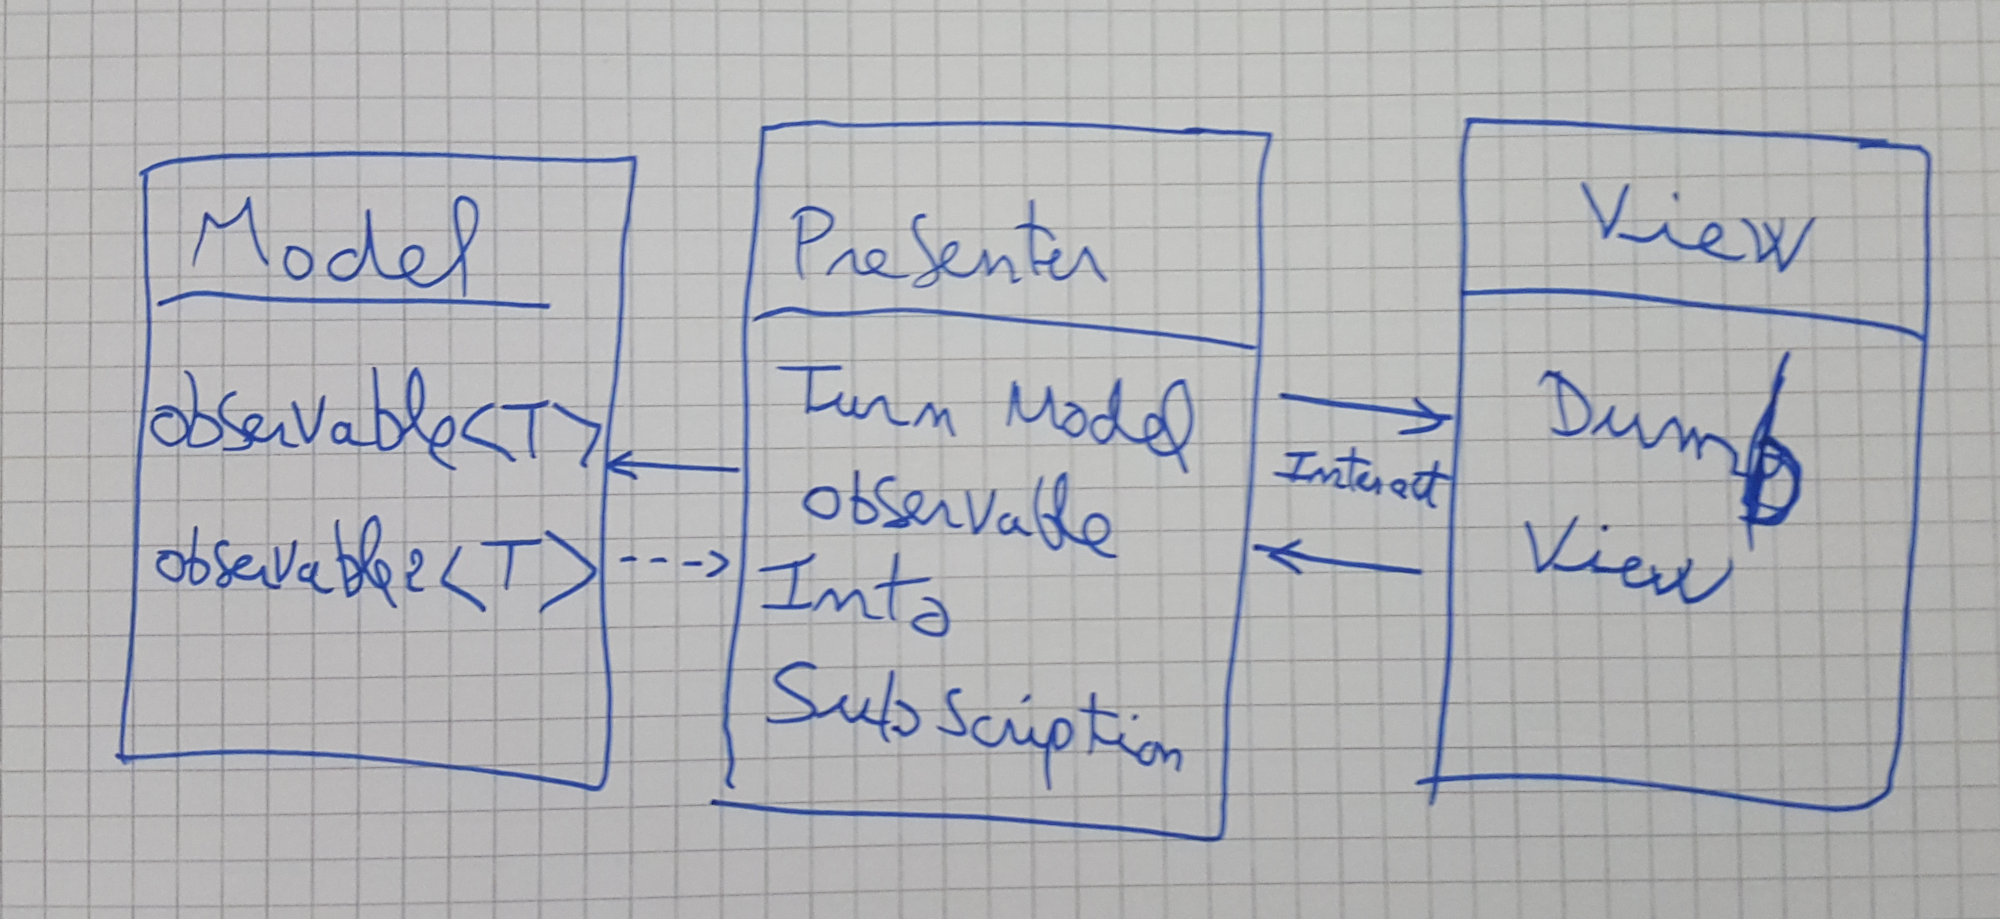 Model
observable<T>
observable2<T>
Presenter
Turn Model
observable
Into
Subscription
Interact
View
Dumb
View